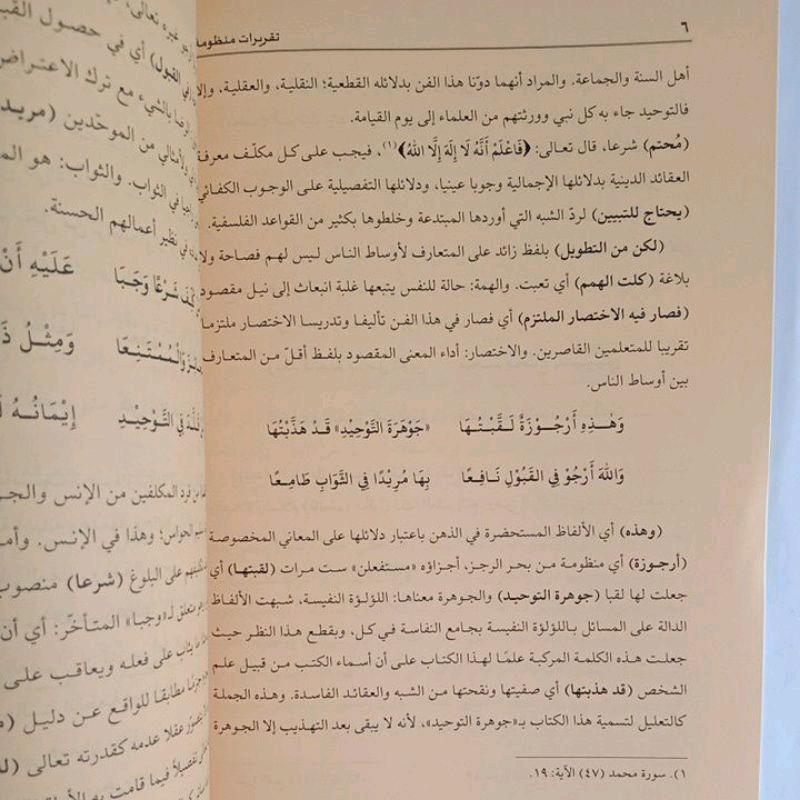 ٦
تقريرات منظومة
أهل السنة والجماعة. والمراد أنهما دوّنا هذا الفن بدلائله القطعية؛ النقلية، والعقلية، وإلا
فالتوحيد جاء به كل نبي وورثتهم من العلماء إلى يوم القيامة.
(مُحتم) شرعا، قال تعالى: ﴿فَاعْلَمْ أَنَّهُ لَا إِلَهَ إِلَّا اللهُ﴾(١)، فيجب على كل مكلّف معرفة
العقائد الدينية بدلائلها الإجمالية وجوبا عينيا، ودلائلها التفصيلية على الوجوب الكفائي
(يحتاج للتبيين) لردّ الشبه التي أوردها المبتدعة وخلطوها بكثير من القواعد الفلسفية.
(لكن من التطويل) بلفظ زائد على المتعارف لأوساط الناس ليس لهم فصاحة ولا
بلاغة (كلت الهمم) أي تعبت. والهمة: حالة للنفس يتبعها غلبة انبعاث إلى نيل مقصود
(فصار فيه الاختصار الملتزم) أي فصار في هذا الفن تأليفا وتدريسا الاختصار ملتزما
تقريبا للمتعلمين القاصرين. والاختصار: أداء المعنى المقصود بلفظ أقلّ من المتعارف
بين أوساط الناس.
وَهٰذِهِ أُرْجُوْزَةٌ لَـقَّبْتُـهَا «جَوْهَرَةَ التَّوْحِيْدِ» قَدْ هَذَّبْتُهَا
وَاللهَ أَرْجُوْ فِي القَبُوْلِ نَافِـعًا بِهَا مُرِيْدًا فِي الثَّوَابِ طَامِـعًا
(وهذه) أي الألفاظ المستحضرة في الذهن باعتبار دلائلها على المعاني المخصوصة
(أرجوزة) أي منظومة من بحر الرجز، أجزاؤه «مستفعلن» ست مرات (لقبتها) أي
جعلت لها لقبا (جوهرة التوحيد) والجوهرة معناها: اللؤلؤة النفيسة، شبهت الألفاظ
الدالة على المسائل باللؤلؤة النفيسة بجامع النفاسة في كل، وبقطع هذا النظر حيث
جعلت هذه الكلمة المركبة علمًا لهذا الكتاب على أن أسماء الكتب من قبيل علم
الشخص (قد هذبتها) أي صفيتها ونقحتها من الشبه والعقائد الفاسدة. وهذه الجملة
كالتعليل لتسمية هذا الكتاب بـ«جوهرة التوحيد»، لأنه لا يبقى بعد التهذيب إلا الجوهرة
١). سورة محمد (٤٧) الآية: ١٩.
أي في حصول القبو
مع ترك الاعتراض
وأمثالي من الموحّدين (مريد
في الثواب. والثواب: هو الم
في نظير أعمالهم الحسنة.
شَرْعًا وَجَبَا عَلَيْهِ أَنْ
وَالْمُمْتَنِعَا وَمِثْلُ ذَ
فِي التَّوْحِيْدِ إِيْمَانُـهُ
من فرد المكلفين من الإنس والجن
الحواس؛ وهذا في الإنس. وأما
على البلوغ (شرعا) منصوب
متعلق لـ«وجبا» المتأخّر: أي أن
على فعله ويعاقب على
مطابقا للواقع عن دليل
عقلا عدمه كقدرته تعالى
تفصيلاً فيما قامت به